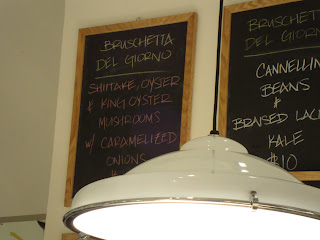 BRUSCHETTA
DEL GIORNO
SHIITAKE, OYSTER
& KING OYSTER
MUSHROOMS
W/ CARAMELIZED
ONIONS
BRUSCHETTA
DEL GIORNO
CANNELLIN
BEANS
&
BRAISED LAC
KALE
$10